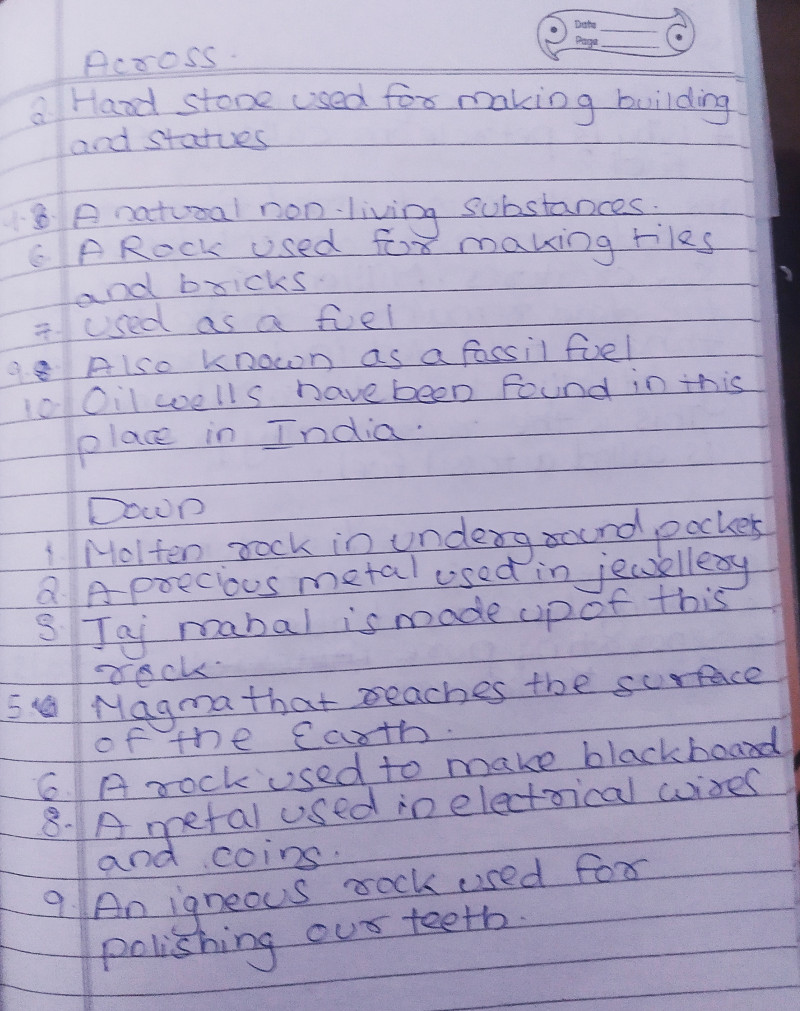 Date
Page
Across.
2 Hard stone used for making building
and statues
4. A natural non-living substances.
6 A Rock used for making tiles
and bricks.
7. Used as a fuel
9. Also known as a fossil fuel
10 Oil wells have been found in this
place in India.
Down
1 Molten rock in underground pockets
2. A precious metal used in jewellery
3. Taj mahal is made up of this
rock.
5. Magma that reaches the surface
of the Earth.
6. A rock used to make blackboard
8. A metal used in electrical wires
and coins.
9. An igneous rock used for
polishing our teeth.